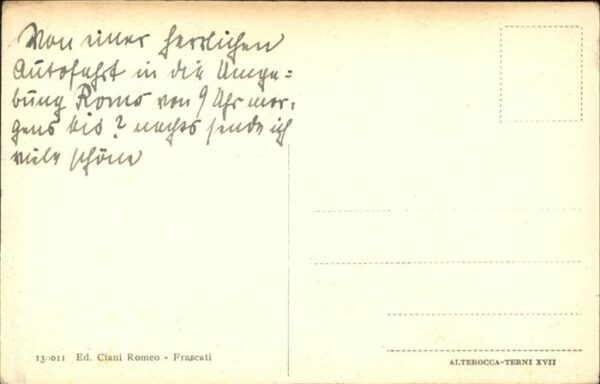 Von einer herrlichen
Autofahrt in die Umge=
bung Roms von 9 Uhr mor=
gens bis ? nachts sende ich
viele schöne
13-011 Ed. Ciani Romeo - Frascati
ALTEROCCA-TERNI XVII